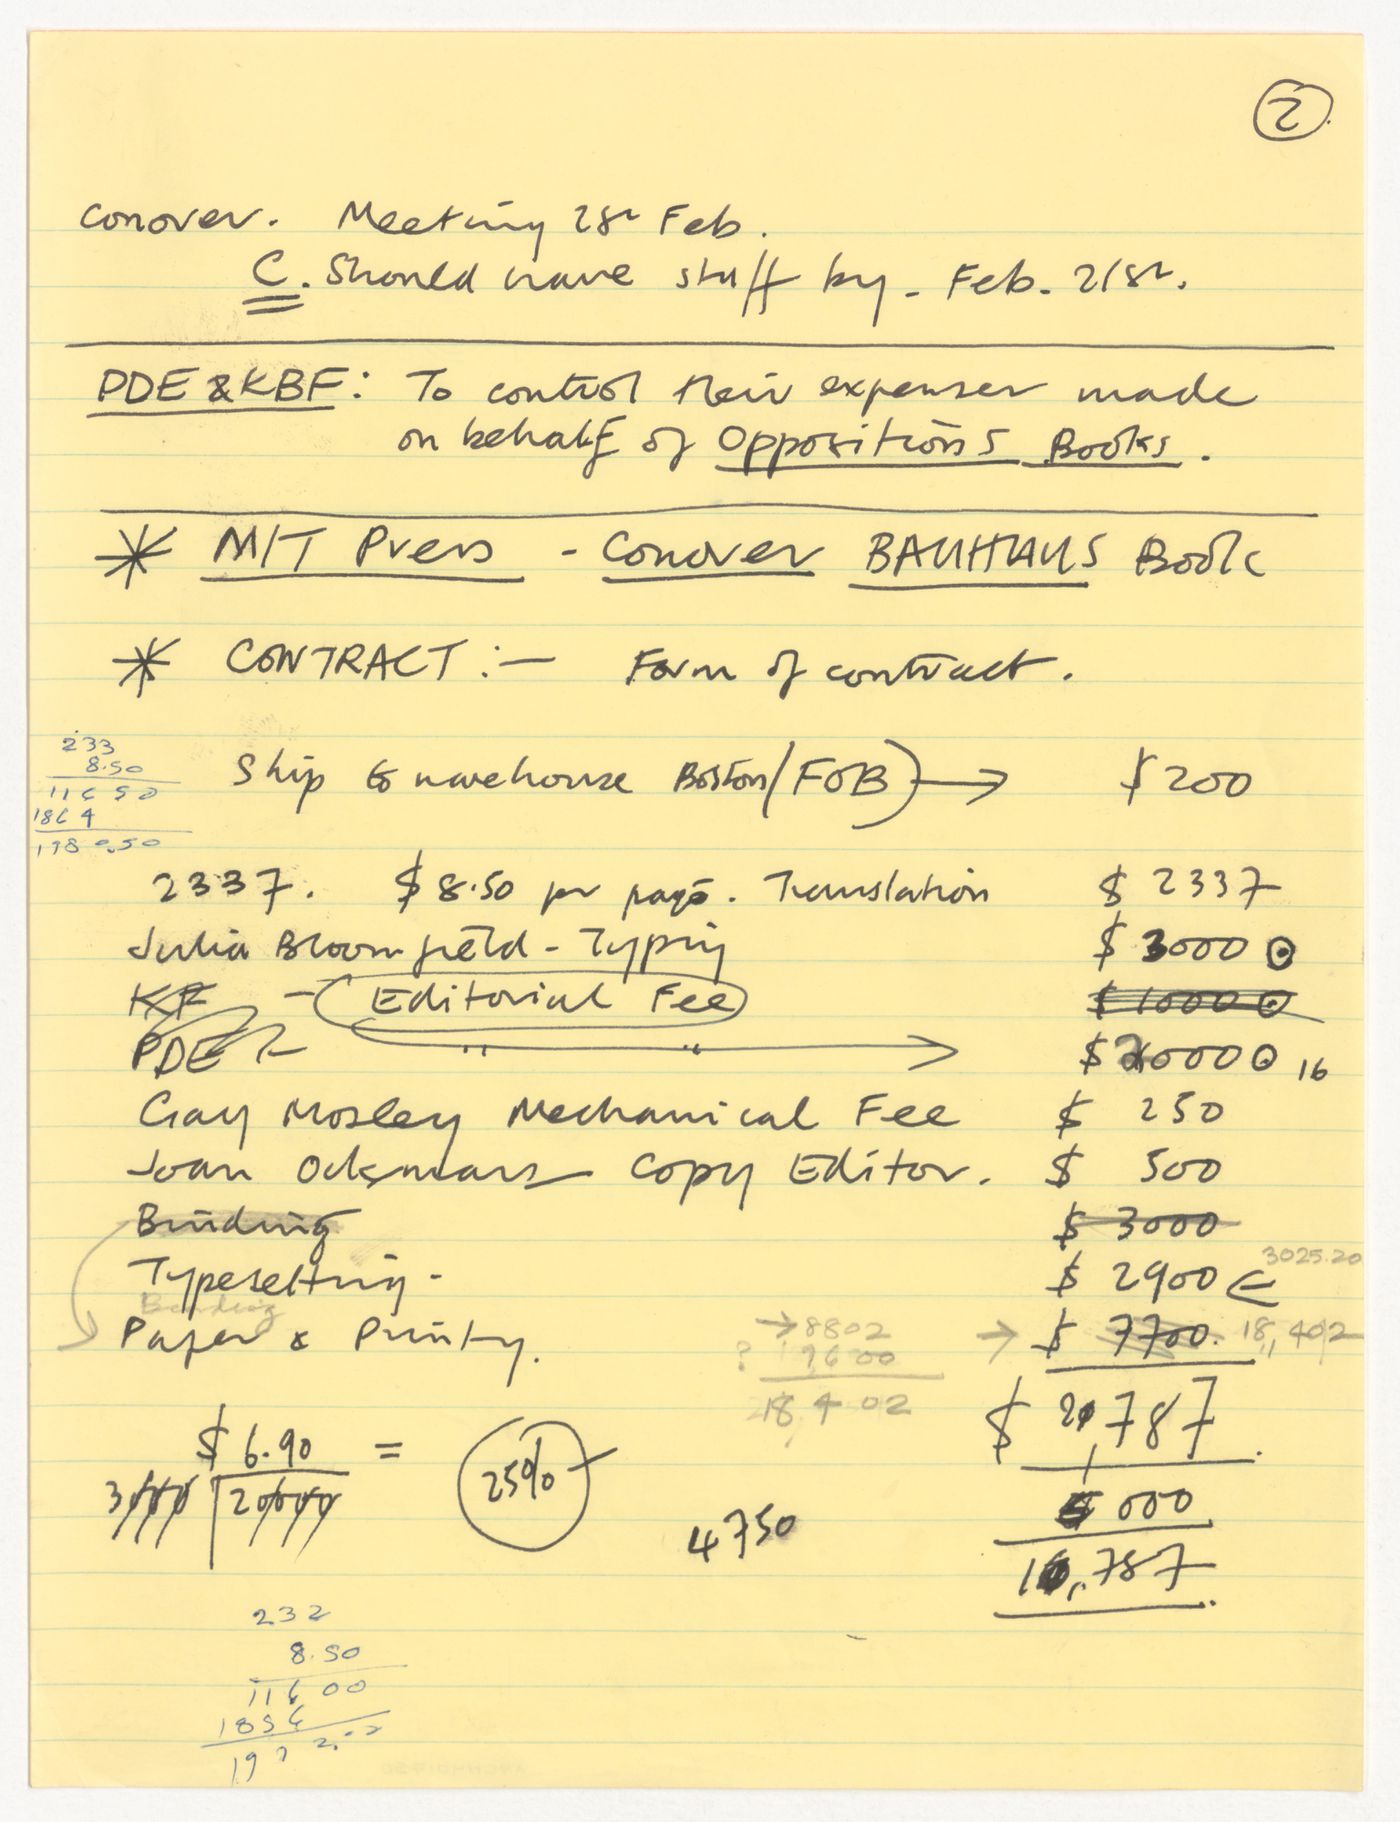 2
Conover. Meeting 28th Feb.
C. Should have stuff by - Feb. 21st.
PDE & KBF: To control their expenses made
on behalf of Oppositions Books.
* MIT Press - Conover BAUHAUS Book
* CONTRACT :— Form of contract.
233
8.50
11650
1864
Ship to warehouse Boston/FOB) → $200
2337. $8.50 per page. Translation $ 2337
Julia Bloomfield - Typing $ 3000
KF - Editorial Fee $ 1000
PDE - " " → 16
Gay Mosley Mechanical Fee $ 250
Joan Copy Editor. $ 500
Binding $ 3000
Typesetting - $ 2900 3025.20
Binding
Paper & Printing. $ 7700. 18,402
→ 8802
? 9600
18402
$ 787
$ 6.90 = 25%
3000 20000
4750
000
787
232
8.50
11600
1856